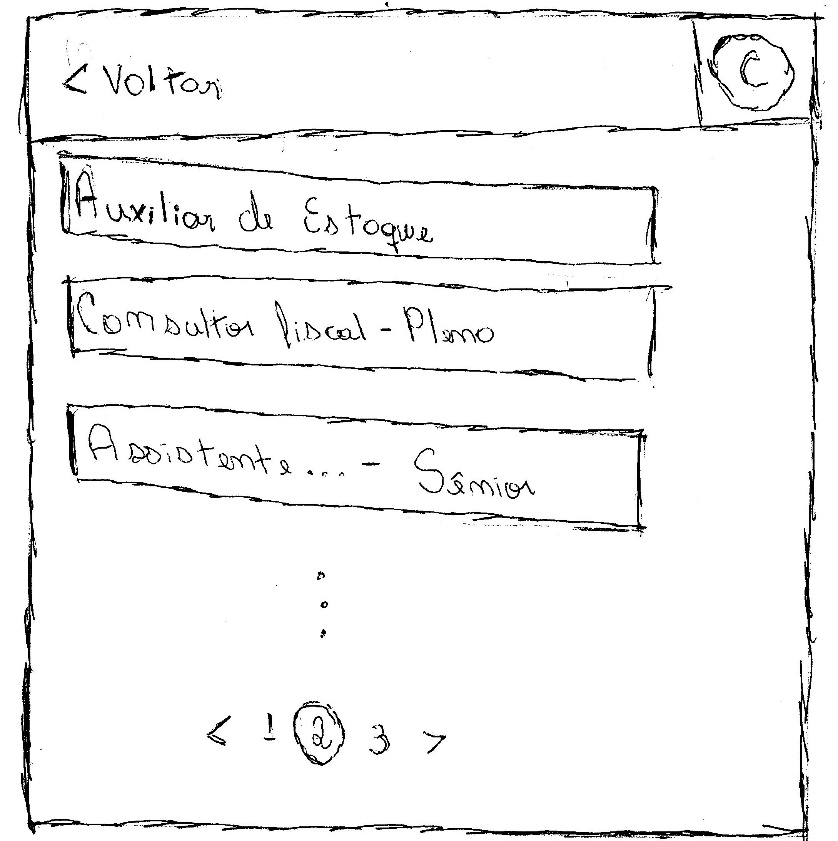 < Voltar
C
Auxiliar de Estoque
Consultor fiscal - Pleno
Assistente... - Sênior
< 1 2 3 >